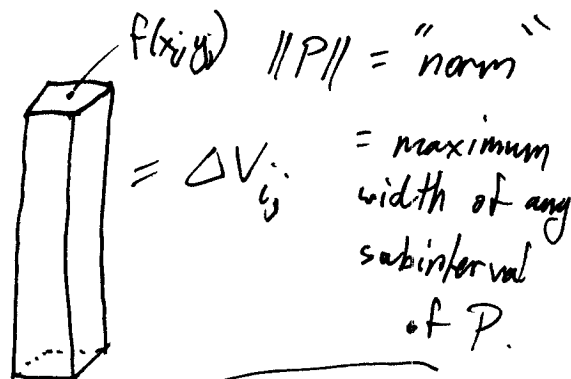 f(xᵢ,yⱼ) ||P|| = "norm"
= ΔVᵢⱼ
= maximum
width of any
subinterval
of P.